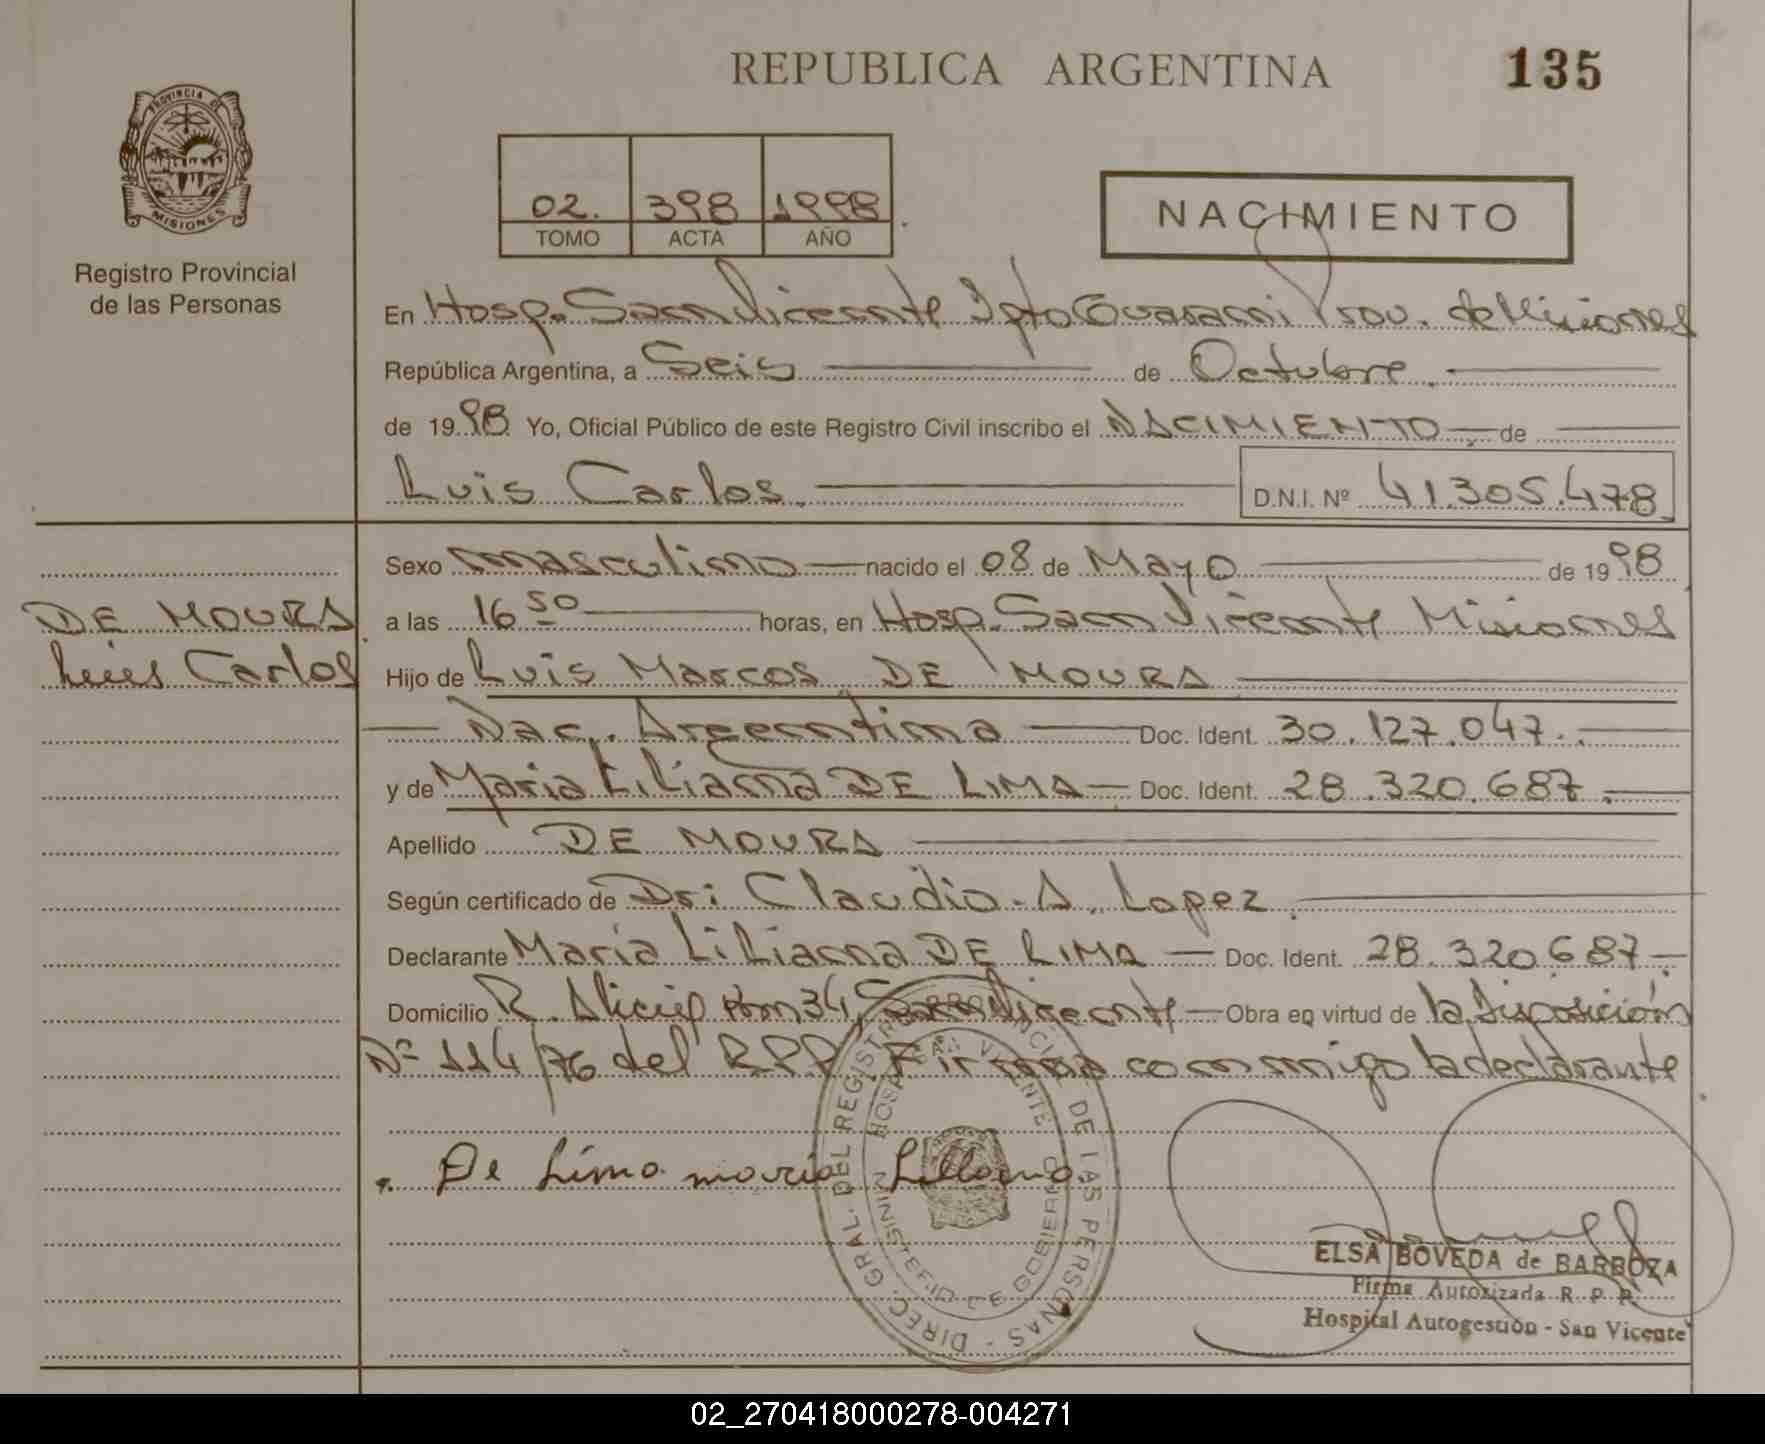 REPUBLICA ARGENTINA
135
PROVINCIA DE
MISIONES
Registro Provincial
de las Personas
02. 398 1998
TOMO ACTA AÑO
NACIMIENTO
En Hosp. San Vicente Dpto Guarani Prov. de Misiones
República Argentina, a Seis de Octubre
de 1998 Yo, Oficial Público de este Registro Civil inscribo el NACIMIENTO de
Luis Carlos. D.N.I. Nº 41.305.478
Sexo masculino nacido el 08 de Mayo de 1998
DE MOURA
a las 16 50 horas, en Hosp. San Vicente Misiones
Luis Carlos
Hijo de Luis Marcos DE MOURA
Nac. Argentina Doc. Ident. 30.127.047.
y de Maria Liliana DE LIMA Doc. Ident. 28.320.687.
Apellido DE MOURA
Según certificado de Dr: Claudio A. Lopez.
Declarante Maria Liliana DE LIMA Doc. Ident. 28.320.687
Domicilio R. Alicia Km 34, San Vicente Obra en virtud de la Disposición
Nº 114/76 del RPP. Firma conmigo la declarante
De Lima maria Liliana
DIREC. GRAL. DEL REGISTRO PROVINCIAL DE LAS PERSONAS
HOSP. SAN VICENTE
MINISTERIO DE GOBIERNO
ELSA BOVEDA de BARBOZA
Firma Autorizada R. P. P.
Hospital Autogestión - San Vicente
02_270418000278-004271